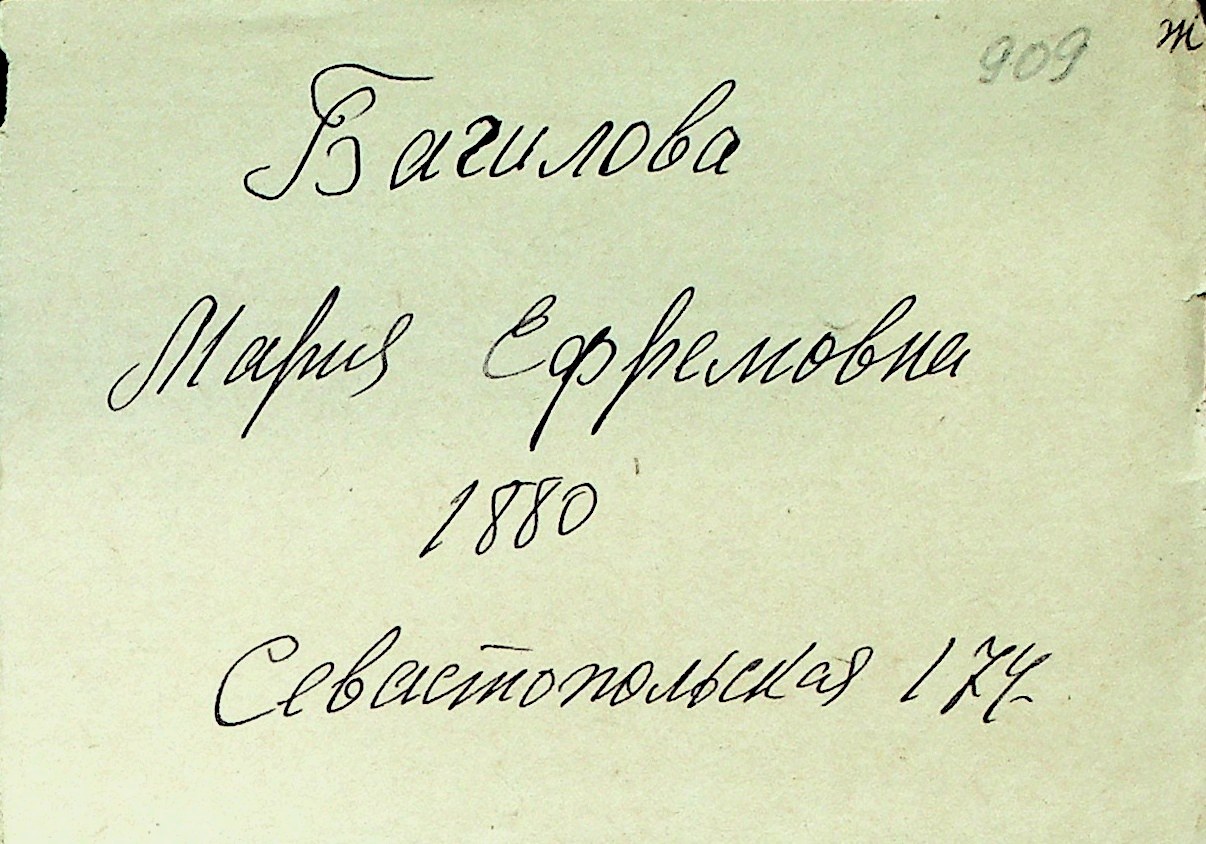 909 ж
Багилова
Мария Ефремовна
1880
Севастопольская 174